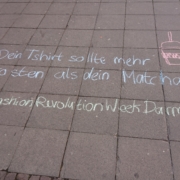 Dein Tshirt sollte mehr
kosten als dein Matcha
Fashion Revolution Week Darm